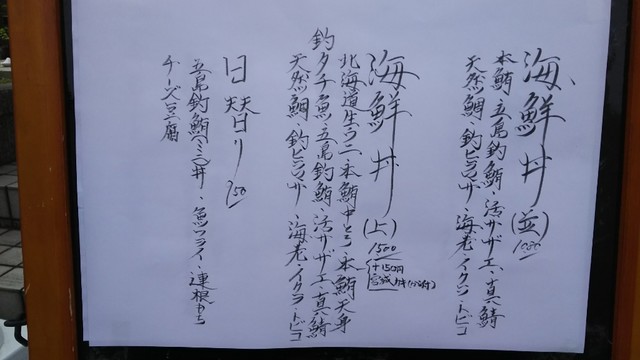 海鮮丼(並)1080
本鮪・五島釣鮪・活サザエ・真鯖
天然鯛・釣ヒラマサ・海老・イクラ・トビコ
海鮮丼(上)1500
+150円
宮城
北海道生ウニ・本鮪中とろ・本鮪天身
釣タチ魚・五島釣鮪・活サザエ・真鯖
天然鯛・釣ヒラマサ・海老・イクラ・トビコ
日替り 750
五島釣鮪ミニ丼・魚フライ・連根もち
チーズ豆腐